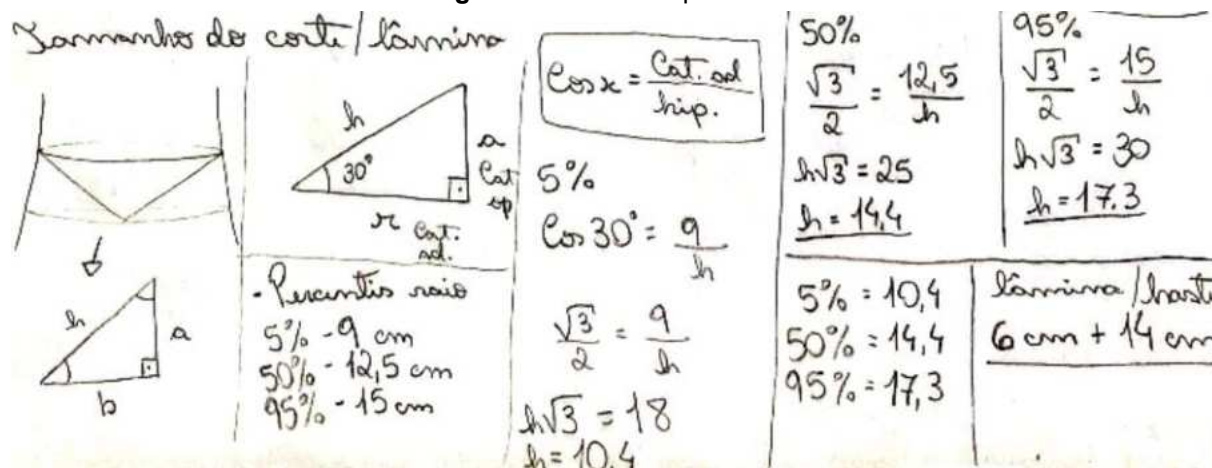 Tamanho do corte/lâmina
h
30°
a
Cat
op
r Cat.
ad.
h
a
b
- Percentis raio
5% - 9 cm
50% - 12,5 cm
95% - 15 cm
Cos x = Cat. ad / hip.
5%
Cos 30° = 9 / h
√3 / 2 = 9 / h
h√3 = 18
h = 10,4
50%
√3 / 2 = 12,5 / h
h√3 = 25
h = 14,4
95%
√3 / 2 = 15 / h
h√3 = 30
h = 17.3
5% = 10,4
50% = 14,4
95% = 17,3
lâmina/haste
6 cm + 14 cm